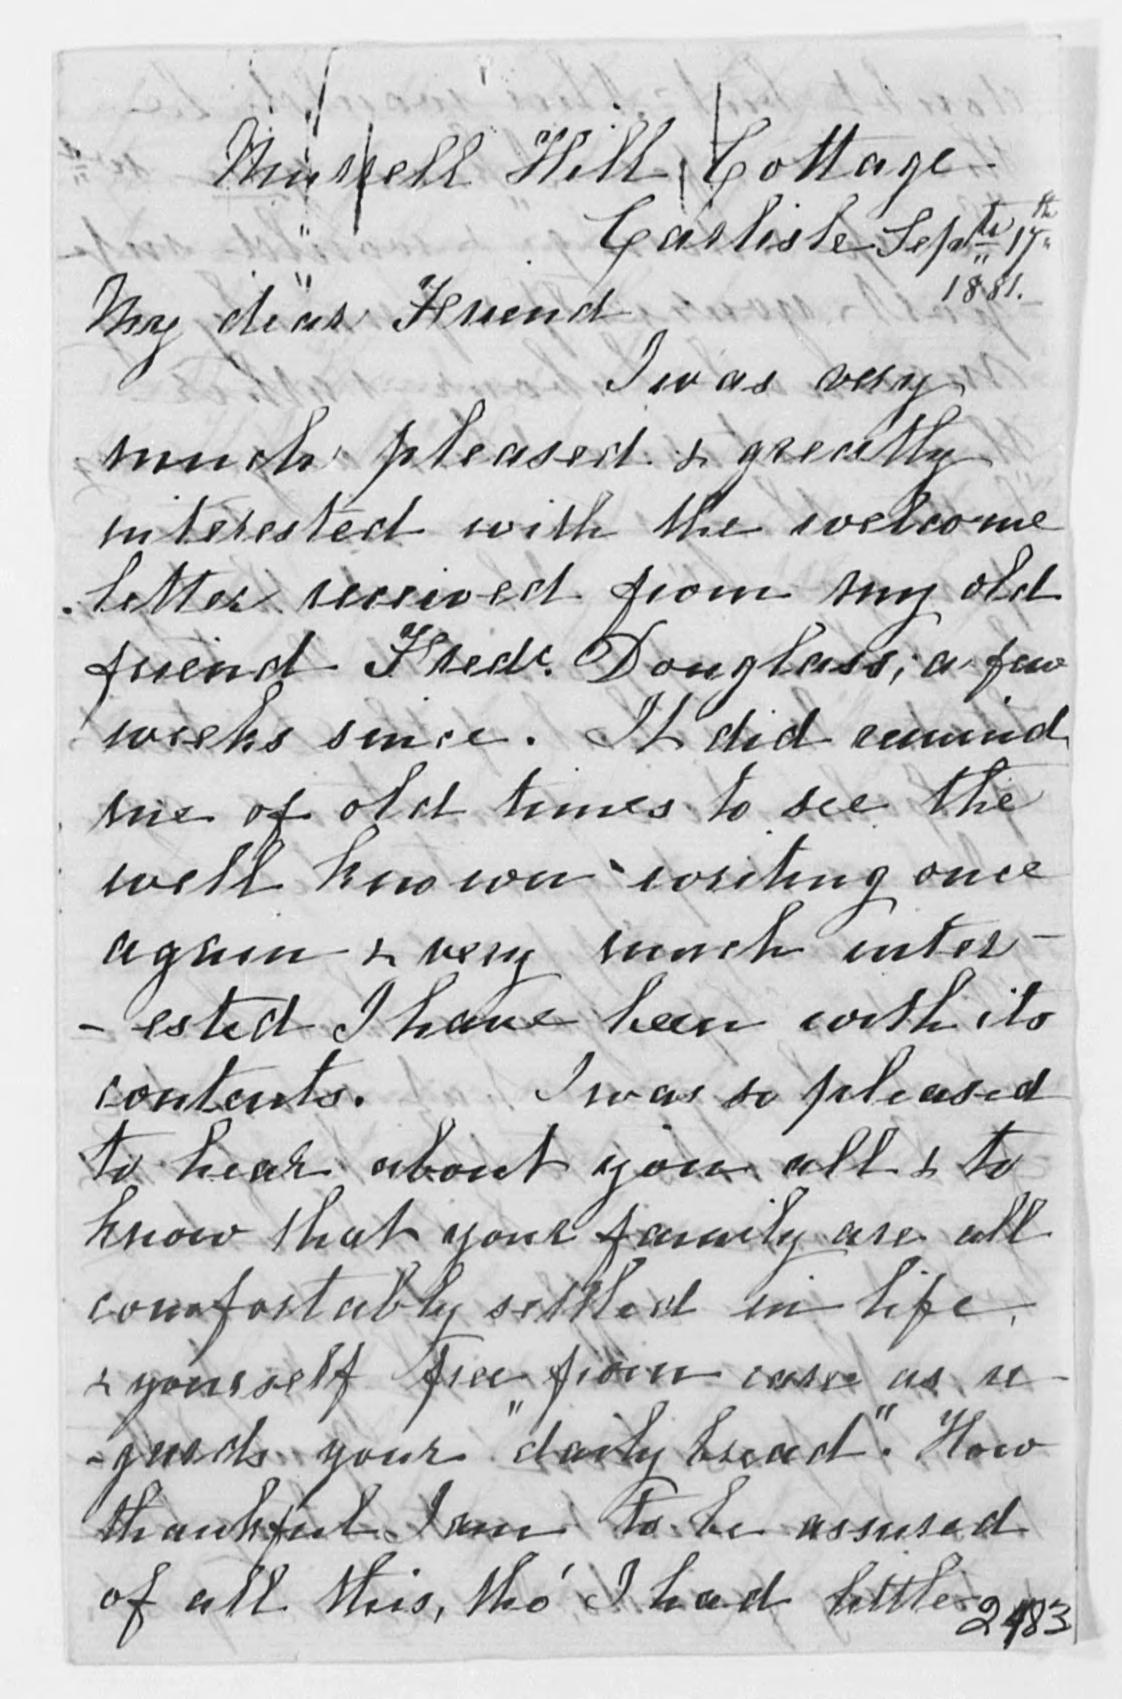 Murrell Hill Cottage
Carlisle Septr 17th
1881.
My dear Friend
I was very
much pleased & greatly
interested with the welcome
letter received from my old
friend Fredc. Douglass, a few
weeks since. It did remind
me of old times to see the
well known writing once
again & very much inter-
-ested I have been with its
contents. I was so pleased
to hear about you all & to
know that your family are all
comfortably settled in life,
& yourself free from care as re-
-gards your "daily bread". How
thankful I am to be assured
of all this, tho' I had little
2483